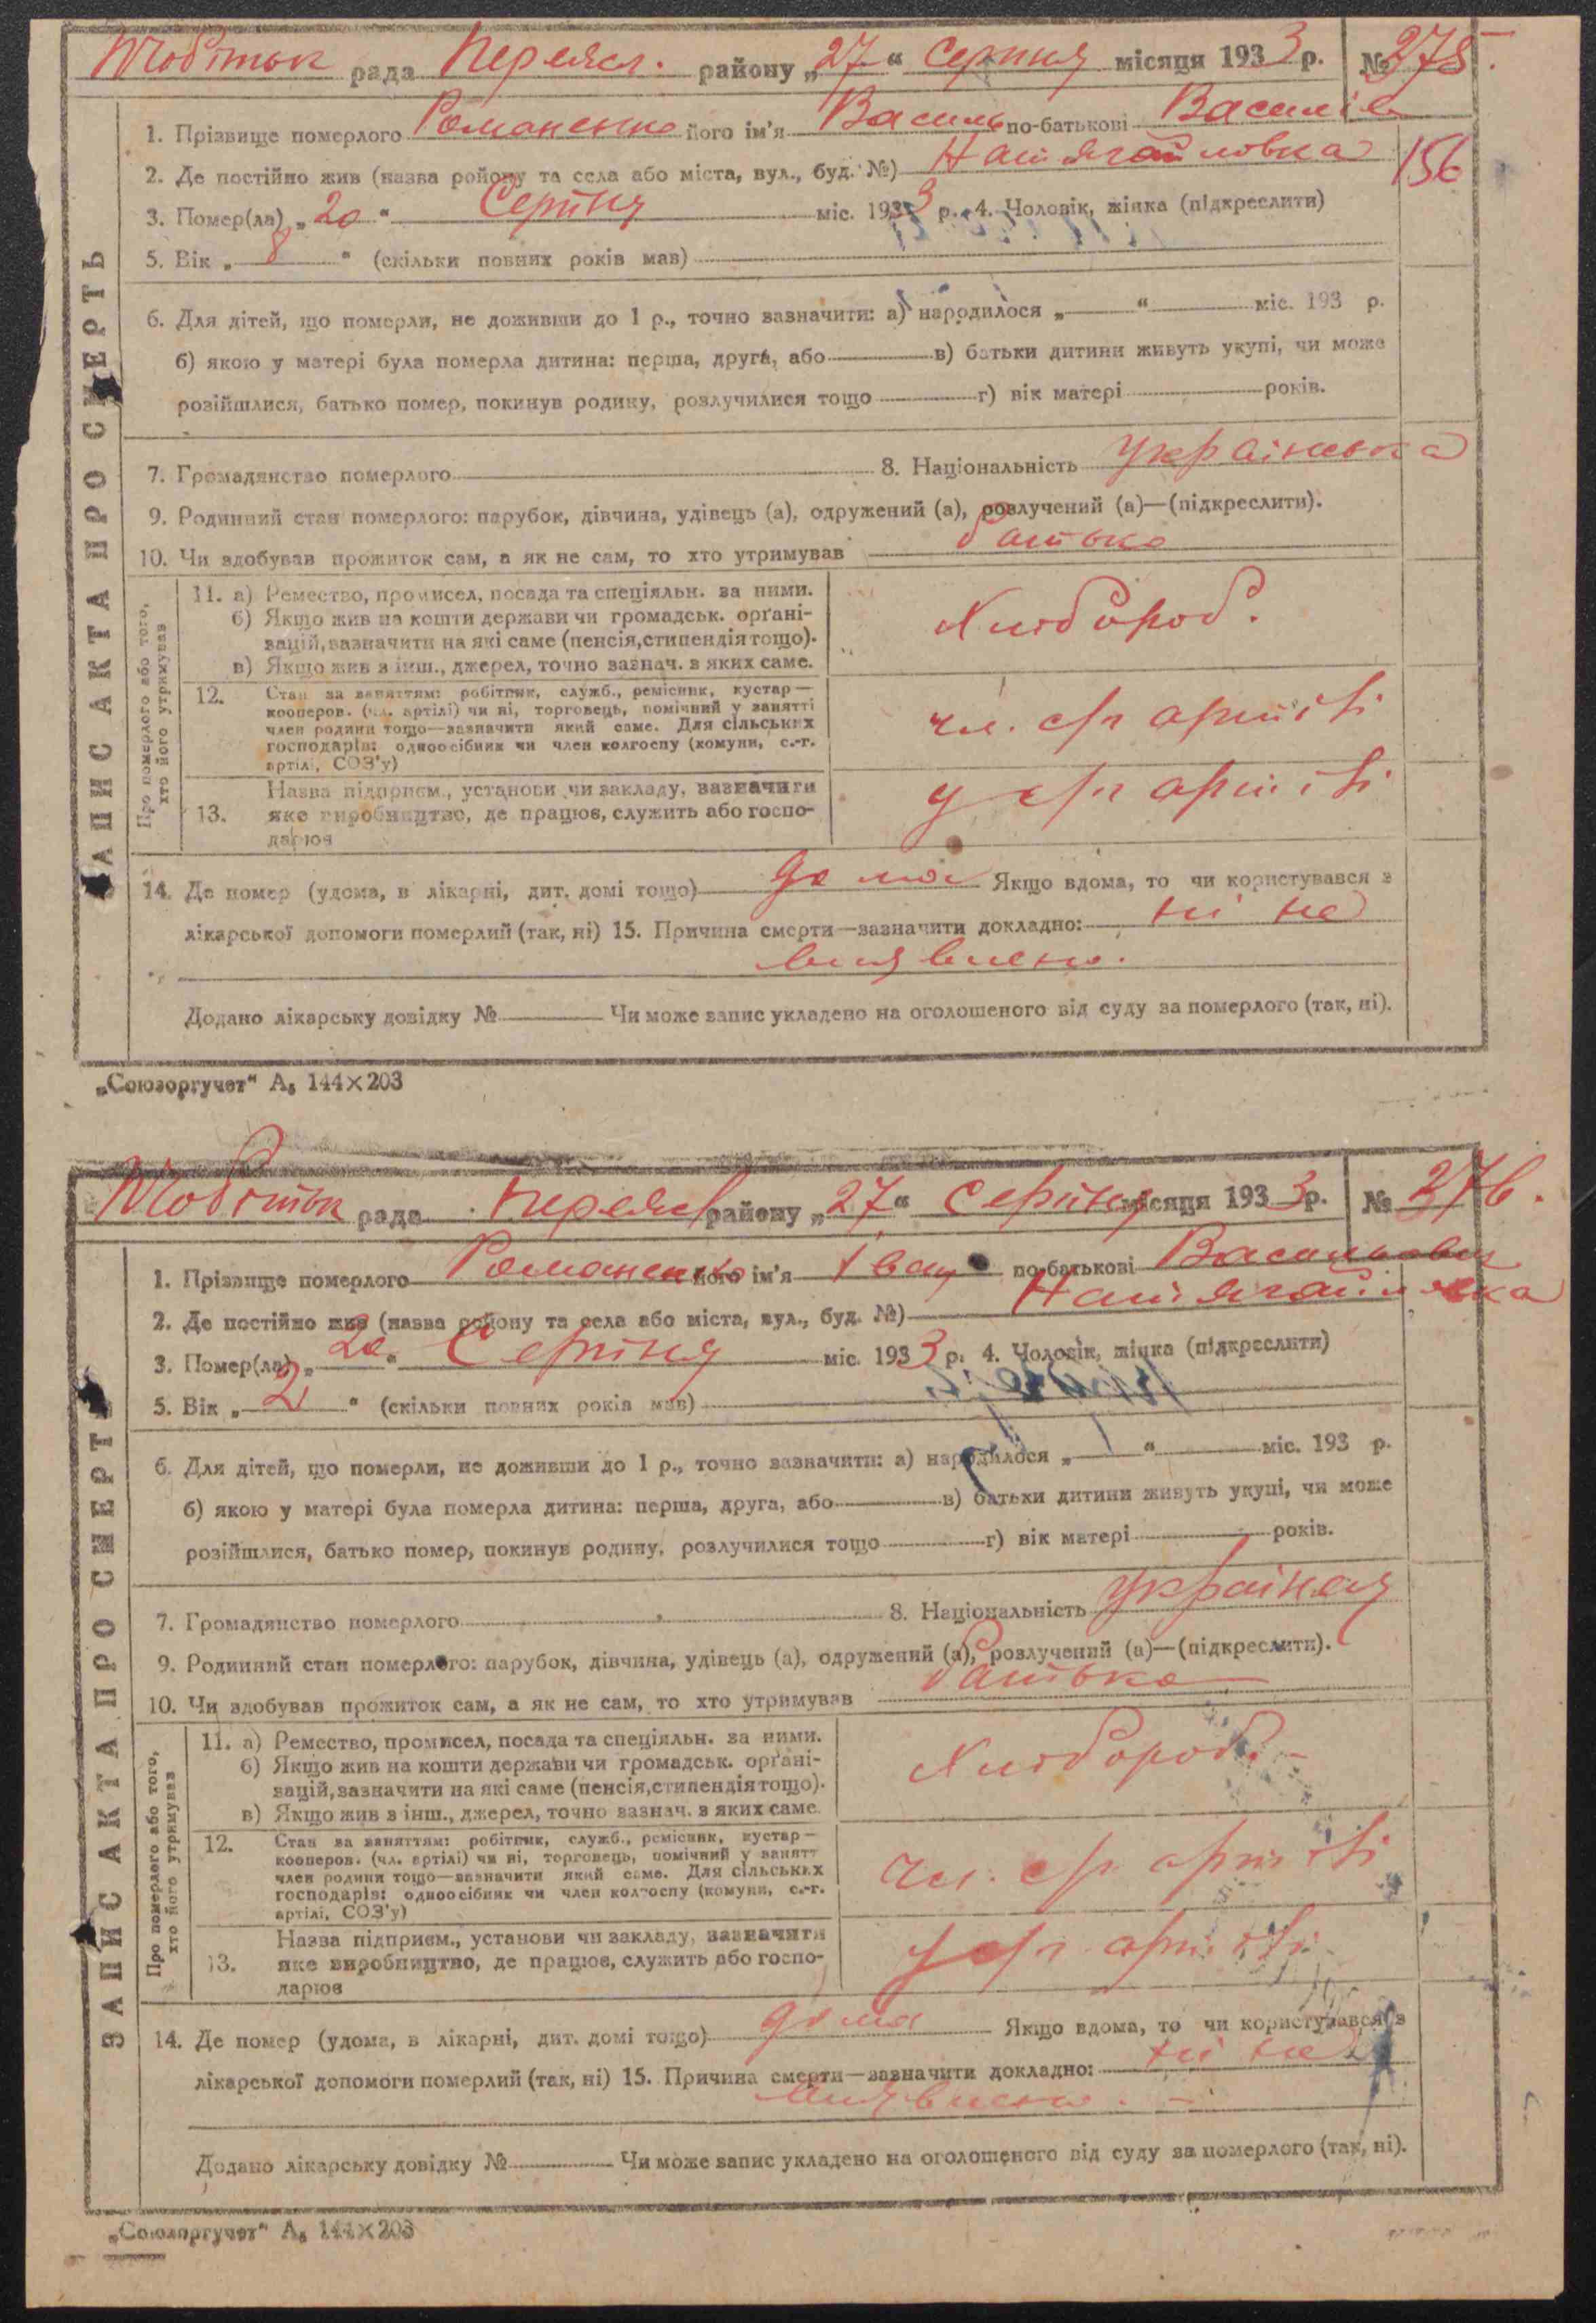 рада Переясл. району „27“ Серпня місяця 1933 р. № 275.
1. Прізвище померлого Романенко його ім'я Василь по-батькові Васильів
156
2. Де постійно жив (назва ройону та села або міста, вул., буд. №) Натягайловка
3. Помер(ла) „20“ Серпня міс. 1933 р. 4. Чоловік, жінка (підкреслити)
5. Вік „8“ (скільки повних років мав)
6. Для дітей, що померли, не доживши до 1 р., точно зазначити: а) народилося „ “ міс. 193 р.
б) якою у матері була померла дитина: перша, друга, або в) батьки дитини живуть укупі, чи може
розійшлися, батько помер, покинув родину, розлучилися тощо г) вік матері років.
7. Громадянство померлого 8. Національність українська
9. Родинний стан померлого: парубок, дівчина, удівець (а), одружений (а), розлучений (а)—(підкреслити).
10. Чи здобував прожиток сам, а як не сам, то хто утримував батько
ЗАПИС АКТА ПРО СМЕРТЬ
Про померлого або того,
хто його утримував
11. а) Ремество, промисел, посада та спеціяльн. за ними.
б) Якщо жив на кошти держави чи громадськ. орґані-
зацій, зазначити на які саме (пенсія, стипендія тощо).
в) Якщо жив з інш., джерел, точно зазнач. з яких саме.
Хлібороб.
12. Стан за заняттям: робітник, служб., ремісник, кустар—
кооперов. (чл. артілі) чи ні, торговець, помічний у занятті
член родини тощо—зазначити який саме. Для сільських
господарів: одноосібник чи член колгоспу (комуни, с.-г.
артілі, СОЗ'у)
чл. с/г артілі
13. Назва підприєм., установи чи закладу, зазначити
яке виробництво, де працює, служить або госпо-
дарює
у с/г артілі
14. Де помер (удома, в лікарні, дит. домі тощо) дома Якщо вдома, то чи користувався з
лікарської допомоги померлий (так, ні) 15. Причина смерти—зазначити докладно: ні не
виявлено.
Додано лікарську довідку № Чи може запис укладено на оголошеного від суду за померлого (так, ні).
„Союзоргучет“ А₅ 144×203
рада Переясл району „27“ Серпня місяця 1933 р. № 276.
1. Прізвище померлого Романенко його ім'я Іван по-батькові Васильович
2. Де постійно жив (назва ройону та села або міста, вул., буд. №) Натягайловка
3. Помер(ла) „20“ Серпня міс. 1933 р. 4. Чоловік, жінка (підкреслити)
5. Вік „2“ (скільки повних років мав)
6. Для дітей, що померли, не доживши до 1 р., точно зазначити: а) народилося „ “ міс. 193 р.
б) якою у матері була померла дитина: перша, друга, або в) батьки дитини живуть укупі, чи може
розійшлися, батько помер, покинув родину, розлучилися тощо г) вік матері років.
7. Громадянство померлого 8. Національність
9. Родинний стан померлого: парубок, дівчина, удівець (а), одружений (а), розлучений (а)—(підкреслити).
10. Чи здобував прожиток сам, а як не сам, то хто утримував батько
ЗАПИС АКТА ПРО СМЕРТЬ
Про померлого або того,
хто його утримував
11. а) Ремество, промисел, посада та спеціяльн. за ними.
б) Якщо жив на кошти держави чи громадськ. орґані-
зацій, зазначити на які саме (пенсія, стипендія тощо).
в) Якщо жив з інш., джерел, точно зазнач. з яких саме.
Хлібороб.
12. Стан за заняттям: робітник, служб., ремісник, кустар—
кооперов. (чл. артілі) чи ні, торговець, помічний у занятт
член родини тощо—зазначити який саме. Для сільських
господарів: одноосібник чи член колгоспу (комуни, с.-г.
артілі, СОЗ'у)
чл. с/г артілі
13. Назва підприєм., установи чи закладу, зазначити
яке виробництво, де працює, служить або госпо-
дарює
у с/г артілі
14. Де помер (удома, в лікарні, дит. домі тощо) дома Якщо вдома, то чи користувався з
лікарської допомоги померлий (так, ні) 15. Причина смерти—зазначити докладно: ні не
виявлено.
Додано лікарську довідку № Чи може запис укладено на оголошеного від суду за померлого (так, ні).
„Союзоргучет“ А₅ 144×203